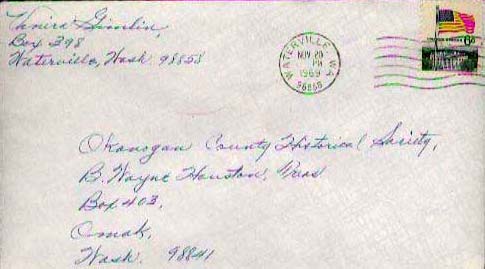 Gimlin,
Box 398
Waterville, Wash 98858
WATERVILLE WA
NOV 28
PM
1969
98858
6¢
Okanogan County Historical Society,
B. Wayne Houston, Pres
Box 403,
Omak,
Wash. 98841